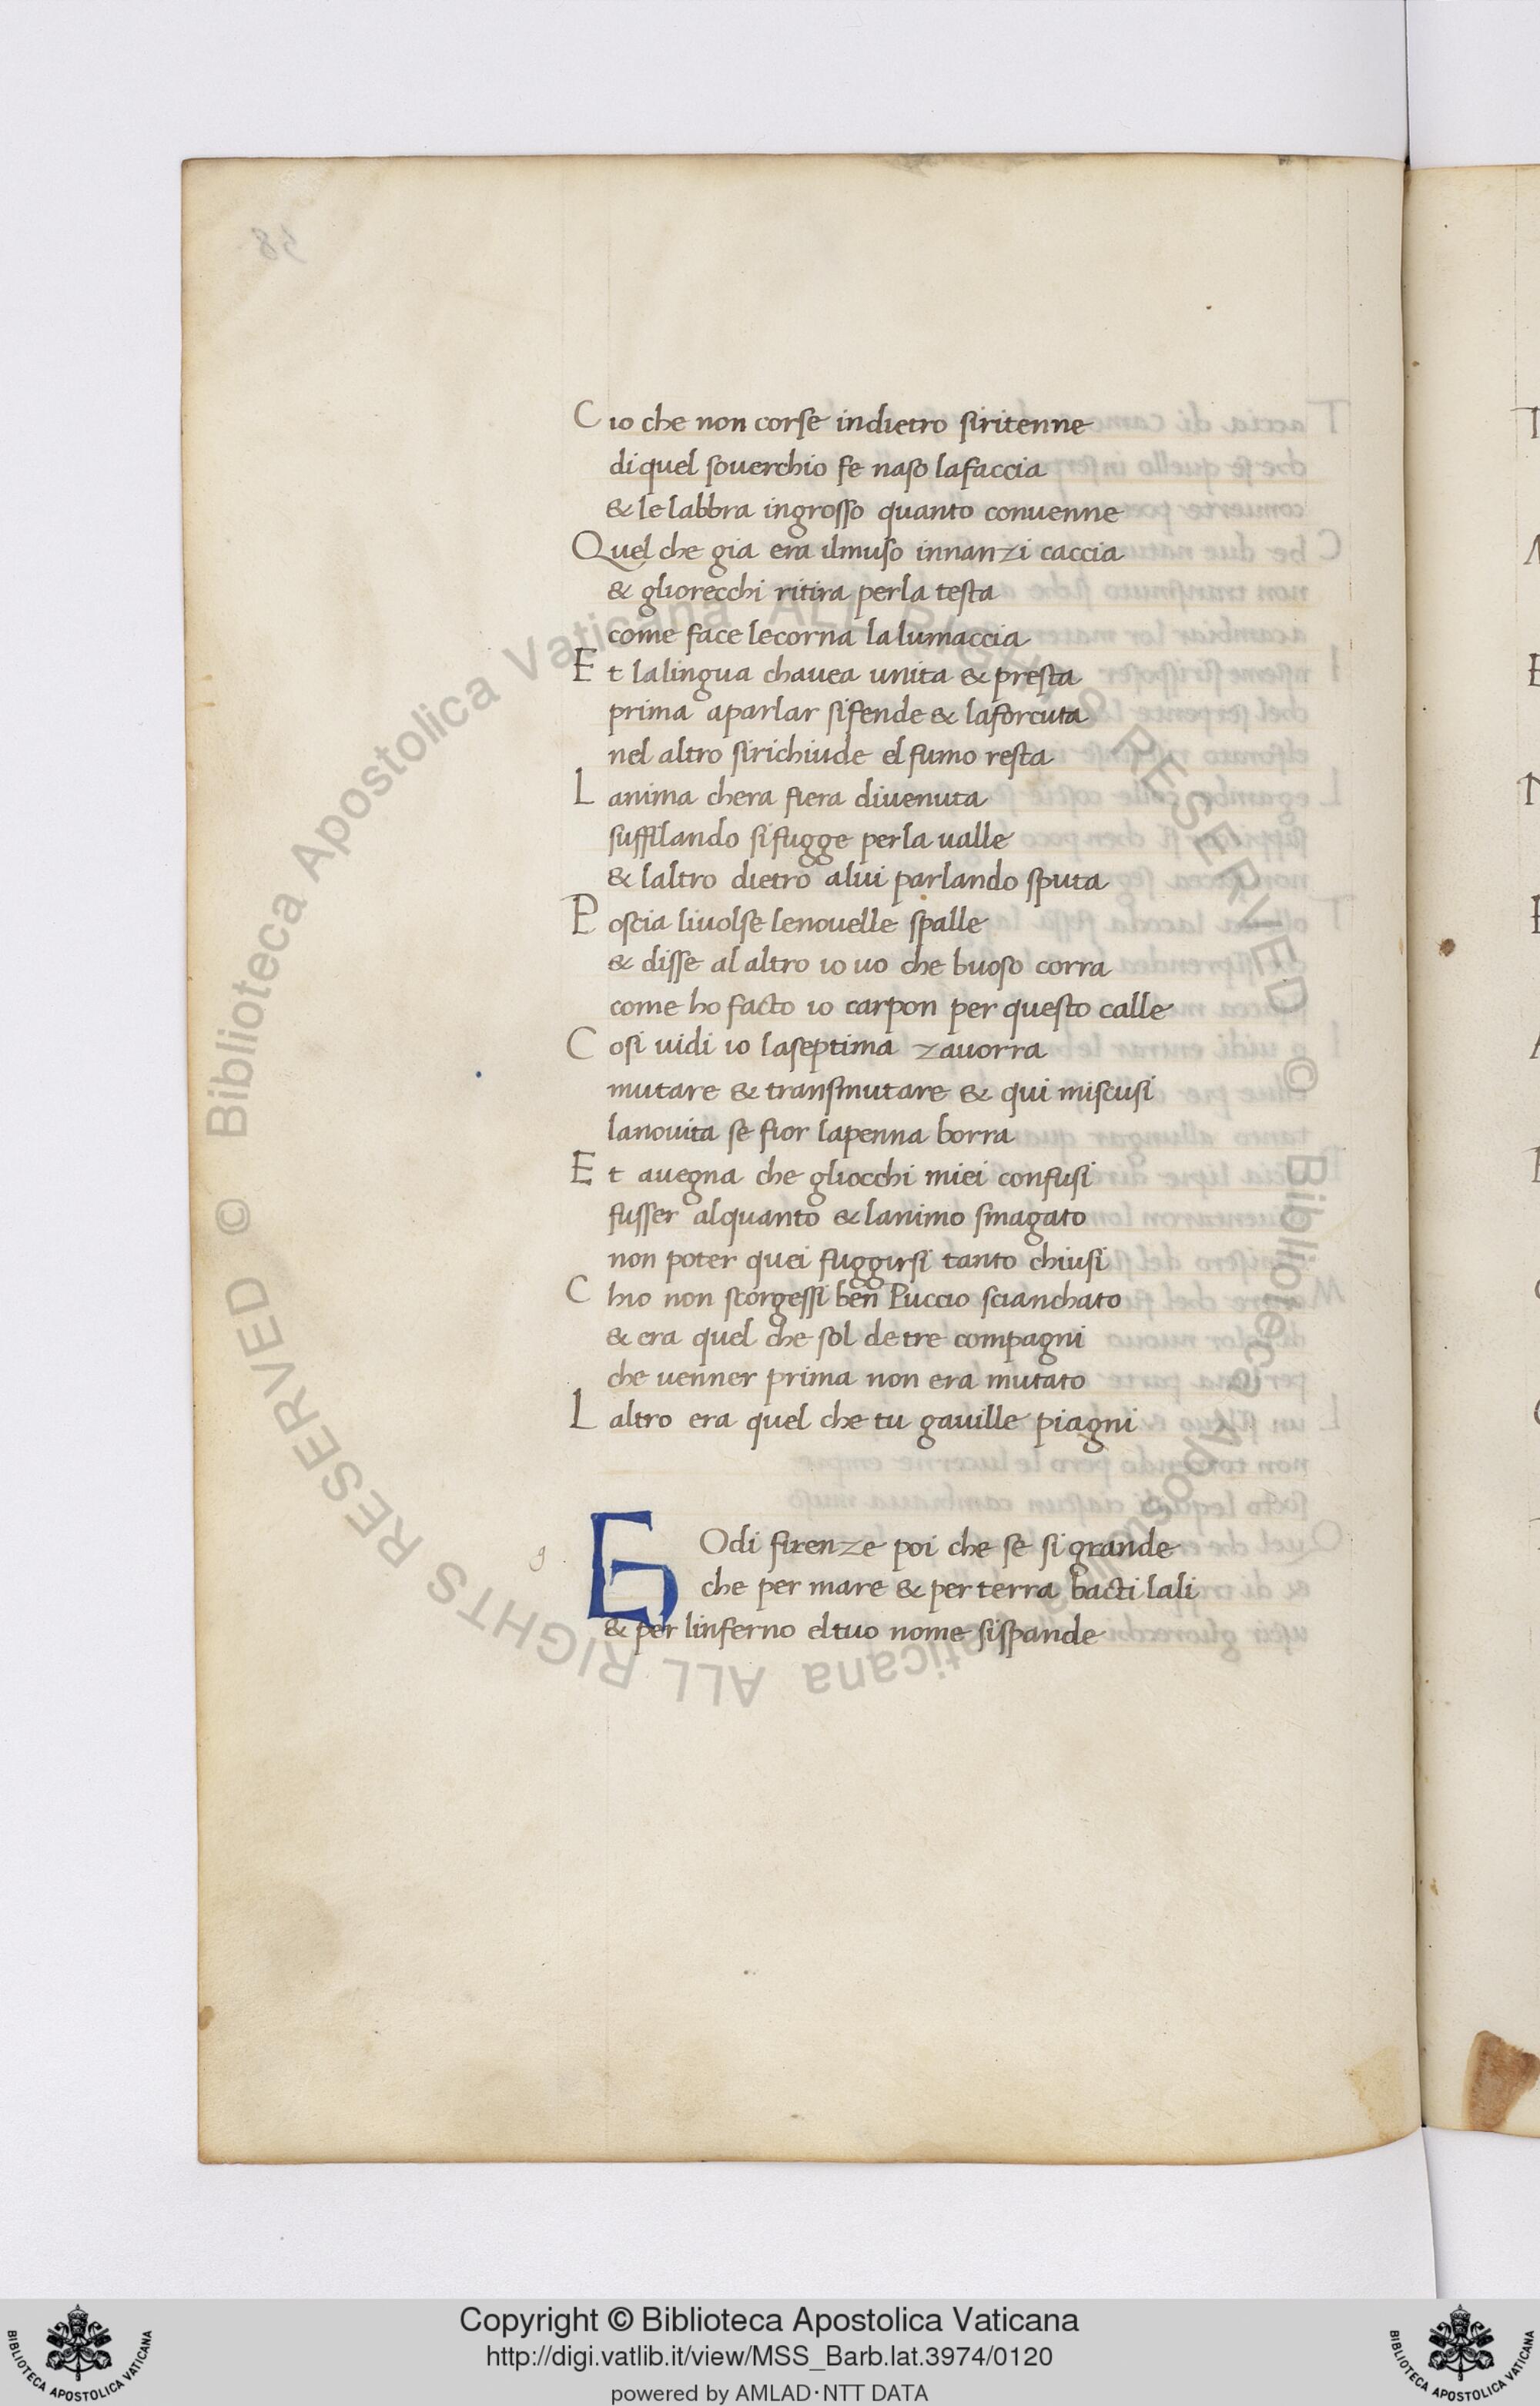 Cio che non corse indietro siritenne
di quel souerchio fe naso lafaccia
& le labbra ingrosso quanto conuenne
Quel che gia era ilmuso innanzi caccia
& gliorecchi ritira perla testa
come face lecorna lalumaccia
Et lalingua chauea unita & presta
prima aparlar sifende & laforcuta
nel altro sirichiude el fumo resta
Lanima chera fiera diuenuta
suffilando sifugge perla ualle
& laltro dietro alui parlando sputa
Poscia liuolse lenouelle spalle
& disse al altro io uo che buoso corra
come ho facto io carpon per questo calle
Cosi uidi io laseptima zauorra
mutare & transmutare & qui miscusi
lanouita se fior lapenna borra
Et auegna che gliocchi miei confusi
fusser alquanto & lanimo smagato
non poter quei fuggirsi tanto chiusi
Chio non scorgessi ben Puccio scianchato
& era quel che sol de tre compagni
che uenner prima non era mutato
Laltro era quel che tu gauille piagni
g GOdi firenze poi che se si grande
che per mare & per terra bacti lali
& per linferno el tuo nome sispande
© Biblioteca Apostolica Vaticana ALL RIGHTS RESERVED © Biblioteca Apostolica Vaticana ALL RIGHTS RESERVED
Copyright © Biblioteca Apostolica Vaticana
http://digi.vatlib.it/view/MSS_Barb.lat.3974/0120
powered by AMLAD·NTT DATA
BIBLIOTECA APOSTOLICA VATICANA
BIBLIOTECA APOSTOLICA VATICANA